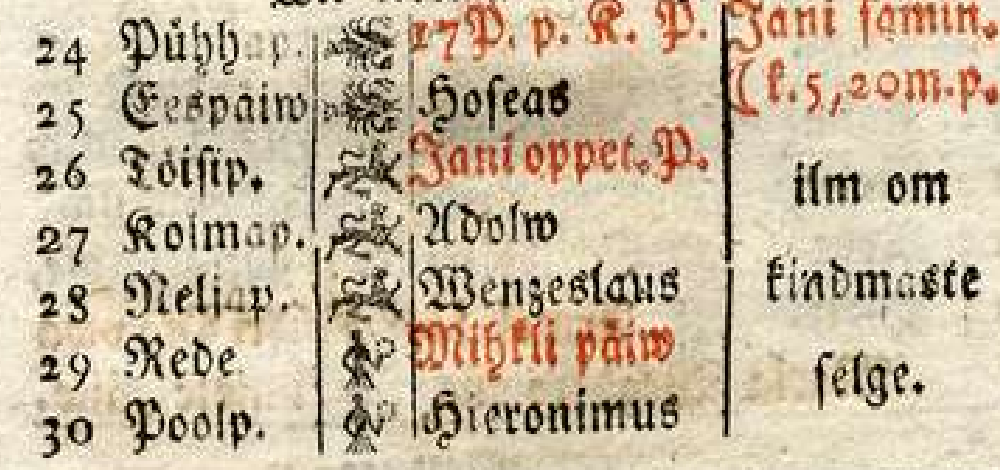 24 Pühhap. 17 P. p. K. P. Jani samin.
25 Eespäiw Hoseas (k. 5, 20 m. p.
26 Töisip. Jani oppet. P. ilm om
27 Kolmap. Adolw
28 Neljap. Wenzeslaus kindmaste
29 Rede Mihkli päiw selge.
30 Poolp. Hieronimus